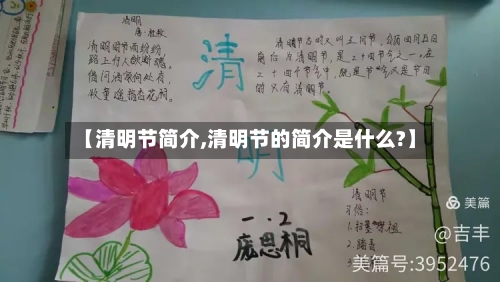 清明
唐·杜牧
清明时节雨纷纷,
路上行人欲断魂。
借问酒家何处有,
牧童遥指杏花村。
清
明
清明节又叫三月节,
后为清明节,是二十四节气之一,在
二十四个节气中,既是节气又是节日
的只有清明节。
【清明节简介,清明节的简介是什么?】
清明节
习俗:
1.扫墓祭祖
2.踏青
一.2
庞思桐
美篇
@吉丰
美篇号:3952476